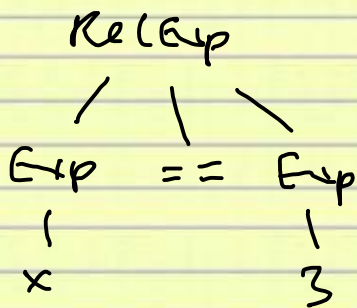 RelExp
Exp == Exp
x 3